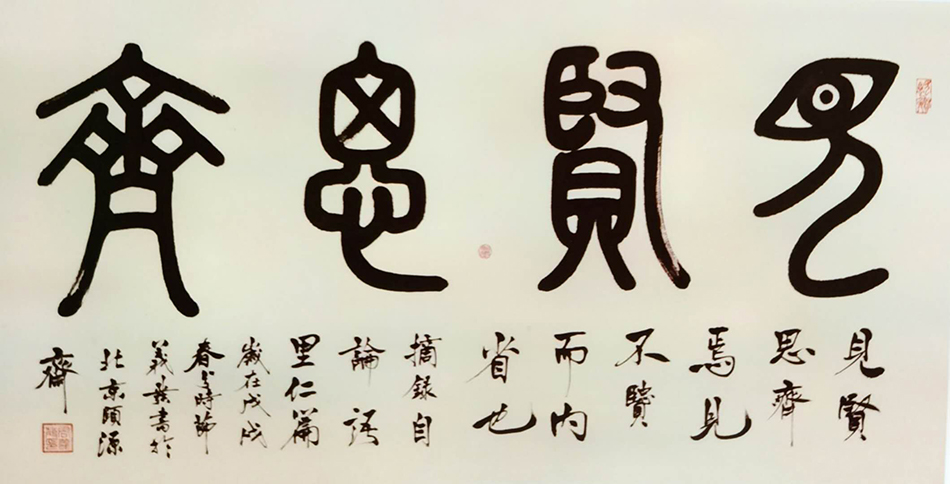 見賢思齊
見賢
思齊
焉見
不賢
而内
省也
摘録自
論語
里仁篇
歲在戊戌
春時節
義書於
北京頤源
齋